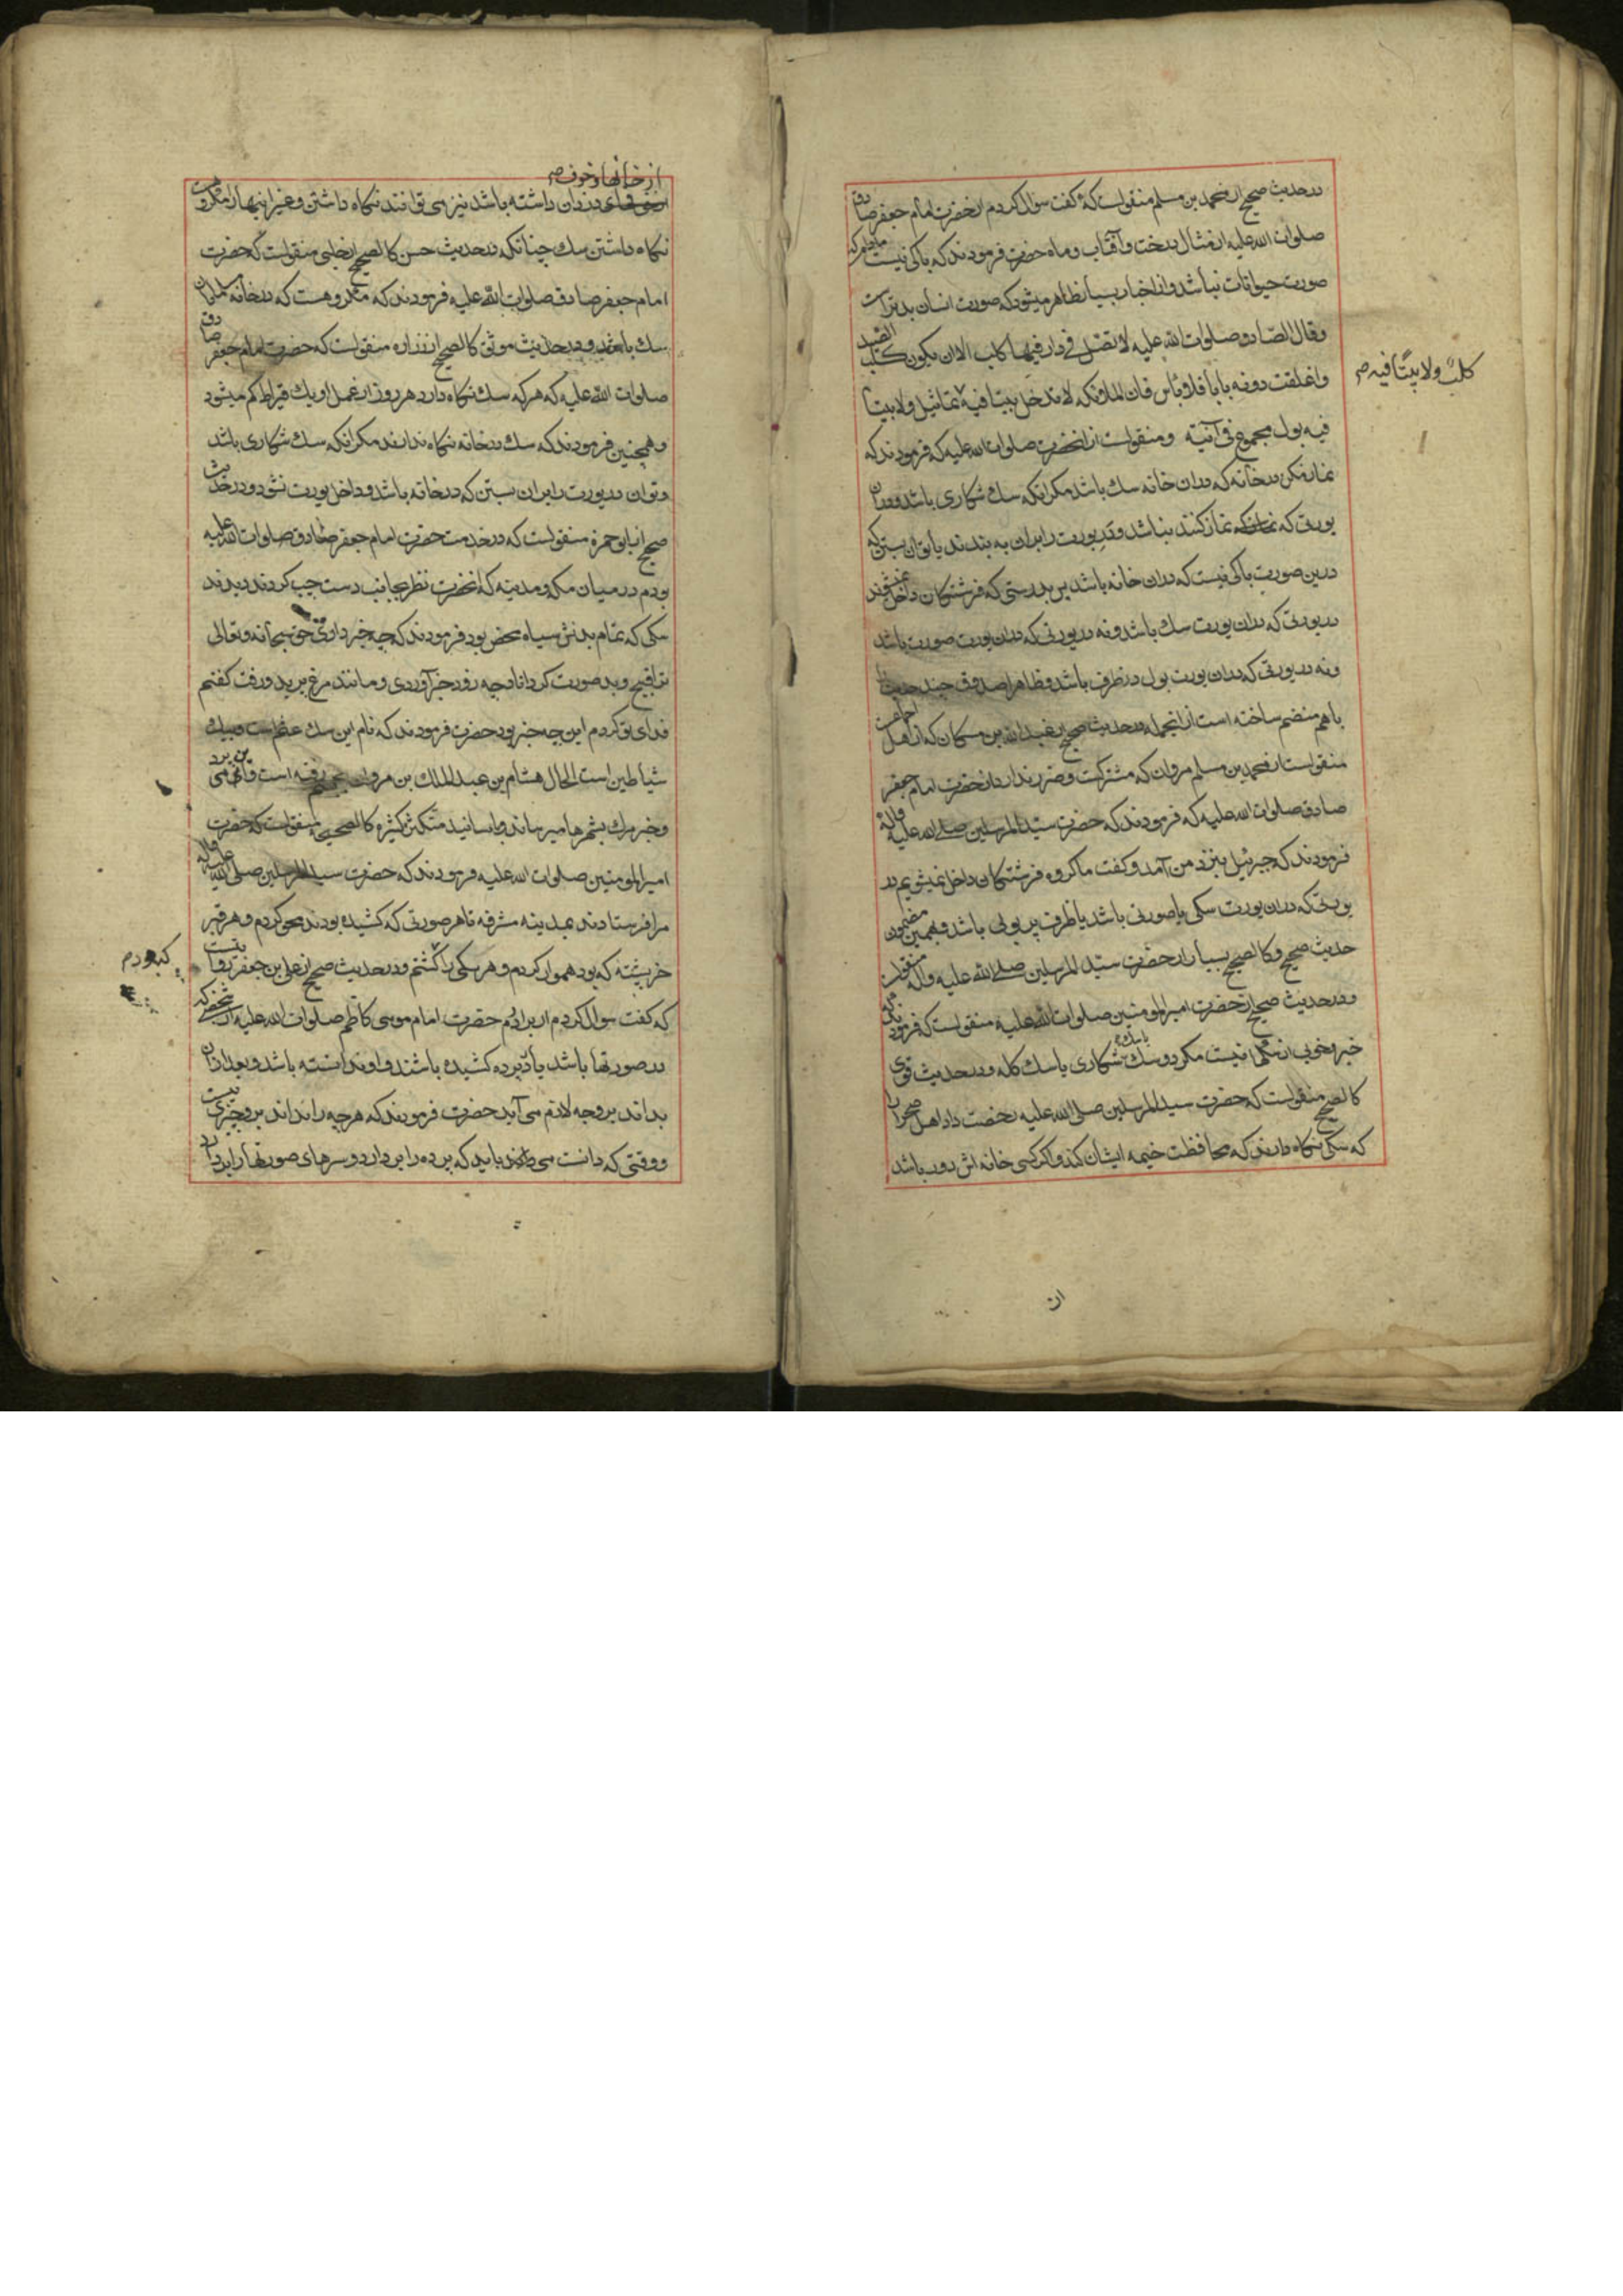 در حدیث صحیح از محمد بن مسلم منقولست که گفت سؤال کردم از حضرت امام جعفر صادق
صلوات الله علیه از مثال درخت و آفتاب و ماه حضرت فرمودند که باکی نیست مادام که
صورت حیوانات نباشد و از اخبار بسیار ظاهر میشود که صورت انسان بدتر است
و قال الصادق صلوات الله علیه لا تصل فی دار فیها کلب الا ان یکون کلب الصید
و اغلقت دونه بابا فلا بأس فان الملائکه لا تدخل بیتا فیه تماثیل و لا بیتا
کلب و لا بیتا فیه صح
فیه بول مجموع فی آنیة و منقولست از انحضرت صلوات الله علیه که فرمودند که
نماز مکن در خانه که در ان خانه سک باشد مکر انکه سک شکاری باشد و در ان
یورتی که نماز کنند نباشد و در یورت را بران به بندند یا توان بستن که
درین صورت باکی نیست که دران خانه باشد پس بدرستی که فرشتکان داخل نمیشوند
در یورتی که دران یورت سک باشد و نه در یورتی که دران یورت صورت باشد
و نه در یورتی که دران یورت بول در ظرف باشد و ظاهرا صدوق چند حدیث را
باهم منضم ساخته است از انجمله در حدیث صحیح از عبد الله بن مسکان که از اهل اجماعست
منقولست از محمد بن مسلم مروان که مشترکست و ضرر ندارد از حضرت امام جعفر
صادق صلوات الله علیه که فرمودند که حضرت سید المرسلین صلی الله علیه و اله
فرمودند که جبرئیل بنزد من آمد و کفت ما کروه فرشتکان داخل نمیشویم در
یورتی که دران یورت سکی یا صورتی باشد یا ظرف پر بولی باشد و بهمین مضمون
حدیث صحیح و کالصحیح بسیار از حضرت سید المرسلین صلی الله علیه و اله منقولست
و در حدیث صحیح از حضرت امیر المؤمنین صلوات الله علیه منقولست که فرمودند که
خیر و خوبی در سکها نیست مکر دو سک شکاری یا سک کله و در حدیث قوی
کالصحیح منقولست که حضرت سید المرسلین صلی الله علیه رخصت داد اهل صحرا را
که سکی نکاه دارند که محافظت خیمه ایشان کند و اکر کسی خانه اش دور باشد
از خانها و خوف صح
دزدان داشته باشد نیز می توانند نکاه داشتن و غیر اینها را مکروهست
نکاه داشتن سک چنانکه در حدیث حسن کالصحیح از حلبی منقولست که حضرت
امام جعفر صادق صلوات الله علیه فرمودند که مکروهست که در خانه مسلمان
سک باشد و در حدیث موثق کالصحیح از زراره منقولست که حضرت امام جعفر صادق
صلوات الله علیه که هر که سک نکاه دارد هر روز از عمل او یک قیراط کم میشود
و همچنین فرمودند که سک در خانه نکاه ندارند مکر انکه سک شکاری باشد
و توان در یورت را بران بستن که در خانه باشد و داخل یورت نشود و در حدیث
صحیح از ابو حمزه منقولست که در خدمت حضرت امام جعفر صادق صلوات الله علیه
بودم در میان مکه و مدینه که انحضرت نظر بجانب دست چپ کردند دیدند
سکی که تمام بدنش سیاه محض بود فرمودند که چه خبر داری حق سبحانه و تعالی
ترا قبیح و بد صورت کرداناد چه زود خبر آوردی و مانند مرغ پرید و رفت کفتم
فدای تو کردم این چه خبر بود حضرت فرمودند که نام این سک است و پیک
شیاطین است الحال هشام بن عبد الملک بن مروان بجهنم رفته است و این می پرد
و خبر مرک بشهرها میرساند و باسانید متکثره کالصحیحه منقولست که حضرت
امیر المؤمنین صلوات الله علیه فرمودند که حضرت سید المرسلین صلی الله علیه و اله
مرا فرستادند بمدینه مشرفه تا هر صورتی که کشیده بودند محو کردم و هر قبر
خرپشته که بود هموار کردم و هر سکی را کشتم و در حدیث صحیح از علی بن جعفر روایتست
که کفت سوال کردم از برادرم حضرت امام موسی کاظم صلوات الله علیه از شخصی که
در صورتها باشد یا در پرده کشیده باشند و او ندانسته باشد و بعد ازان
بداند برو چه لازم می آید حضرت فرمودند که هر چه را نداند برو چیزی نیست
و وقتی که دانست می باید که پرده را بردارد و سرهای صورتها را